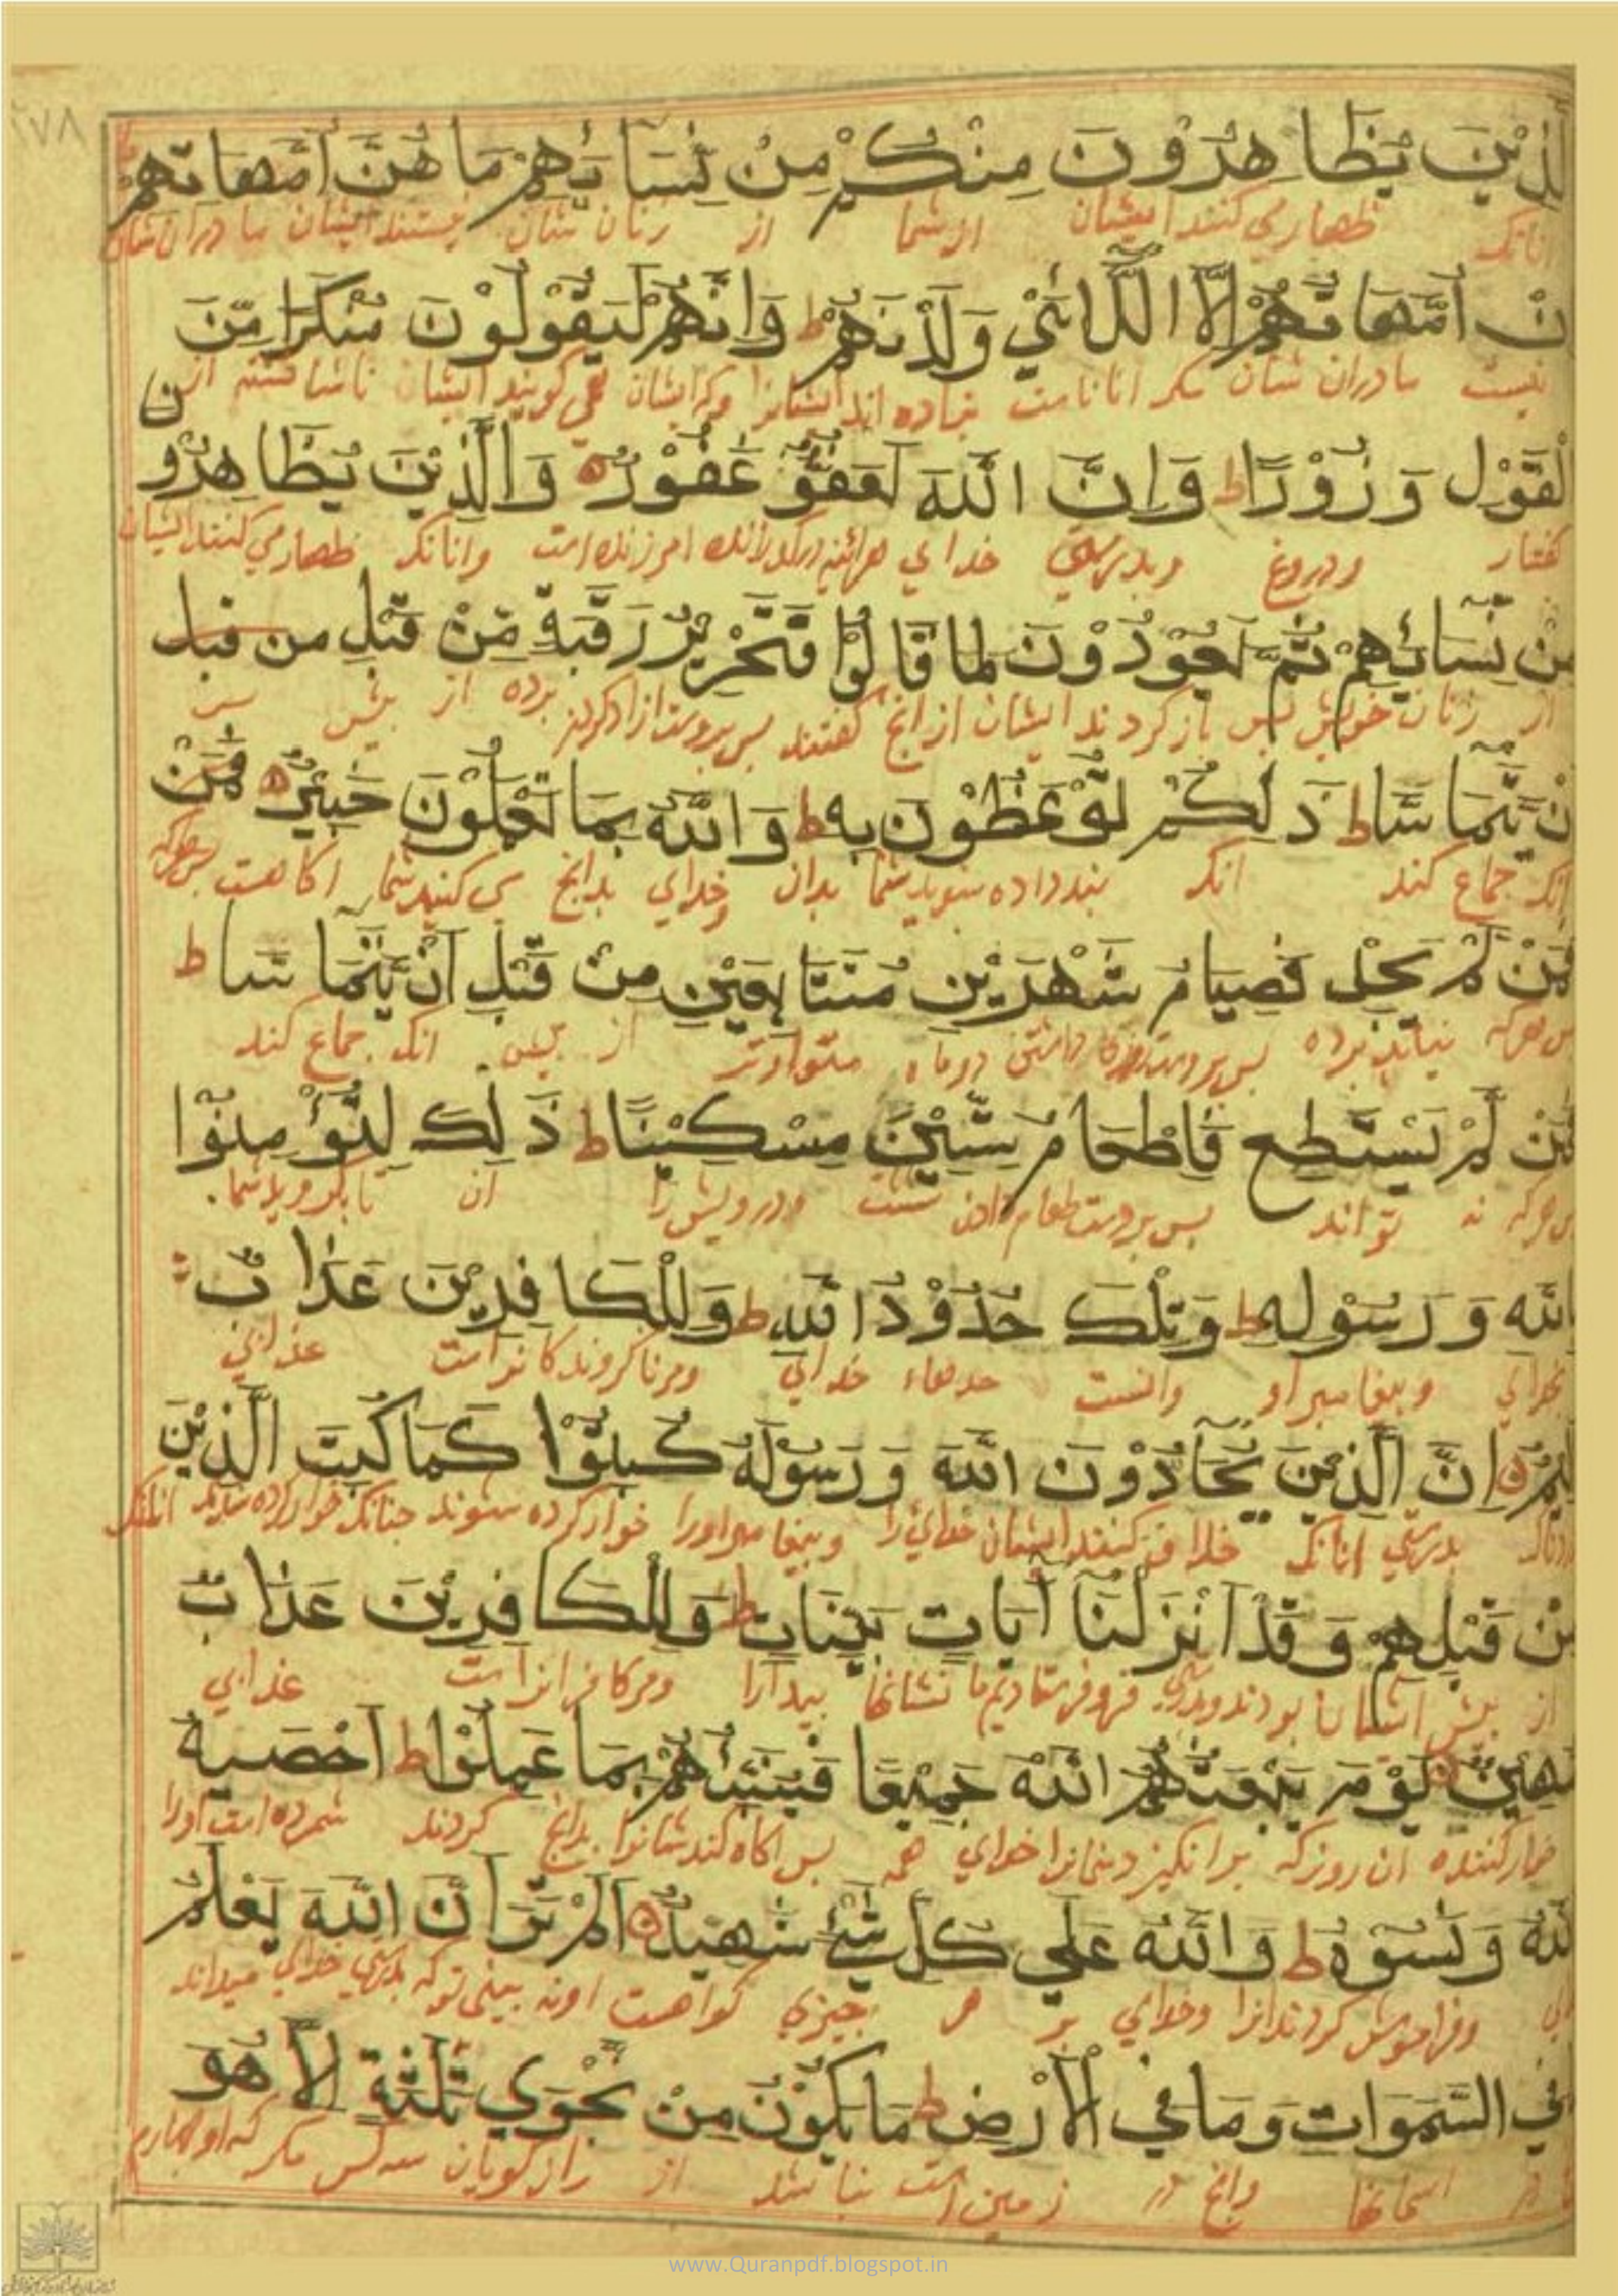 ٢٧٨
الَّذِيْنَ يُظَاهِرُوْنَ مِنْكُمْ مِنْ نِسَائِهِمْ مَا هُنَّ اُمَّهَاتِهِمْ
انانک ظهار می کنند ایشان از شما از زنان شان نیستند ایشان مادران شان
اِنْ اُمَّهَاتُهُمْ اِلَّا اللَّائِيْ وَلَدْنَهُمْ ط وَاِنَّهُمْ لَيَقُوْلُوْنَ مُنْكَرًا مِّنَ
نیست مادران شان مکر انانست بزاده اند ایشانرا وکه ایشان می کویند ایشان ناشناخته از
الْقَوْلِ وَزُوْرًا ط وَاِنَّ اللّٰهَ لَعَفُوٌّ غَفُوْرٌ ٥ وَالَّذِيْنَ يُظَاهِرُوْنَ
کفتار ودروغ وبدرستی خدای هرائنه امرزنده است وانانک ظهار می کنند ایشان
مِنْ نِسَائِهِمْ ثُمَّ يَعُوْدُوْنَ لِمَا قَالُوْا فَتَحْرِيْرُ رَقَبَةٍ مِّنْ قَبْلِ من قبل
از زنان خویش پس باز کردند ایشان از انچ کفتند پس بروست ازاد کردن برده از پیش
اَنْ يَّتَمَاسَّا ط ذٰلِكُمْ تُوْعَظُوْنَ بِهِ ط وَاللّٰهُ بِمَا تَعْمَلُوْنَ خَبِيْرٌ ٥ فَمَنْ
انک جماع کند انک پند داده شوید شما بدان وخدای بدانچ می کنید شما اکاهست پس هرکه
فَمَنْ لَّمْ يَجِدْ فَصِيَامُ شَهْرَيْنِ مُتَتَابِعَيْنِ مِنْ قَبْلِ اَنْ يَّتَمَاسَّا ط
پس هرکه نیابد برده پس بروست روزه داشتن دو ماه متواتر از پیش انک جماع کند
فَمَنْ لَّمْ يَسْتَطِعْ فَاِطْعَامُ سِتِّيْنَ مِسْكِيْنًا ط ذٰلِكَ لِتُؤْمِنُوْا
پس هرکه نه تواند پس بروست طعام دادن شست ودرویش را ان تا بکروید شما
بِاللّٰهِ وَرَسُوْلِهِ ط وَتِلْكَ حُدُوْدُ اللّٰهِ ط وَلِلْكَافِرِيْنَ عَذَابٌ
بخدای وپیغامبر او وانست حدهاء خدای ومرناکروندکانراست عذابی
اَلِيْمٌ ٥ اِنَّ الَّذِيْنَ يُحَادُّوْنَ اللّٰهَ وَرَسُوْلَهُ كُبِتُوْا كَمَا كُبِتَ الَّذِيْنَ
دردناک بدرستی انانک خلاف کنند ایشان خدای را وپیغامبر اورا خوار کرده شوند جنانک خوار کرده شدند انانک
مِنْ قَبْلِهِمْ وَقَدْ اَنْزَلْنَا اٰيَاتٍ بَيِّنَاتٍ ط وَلِلْكَافِرِيْنَ عَذَابٌ
از پیش ایشان بودند وبدرستی فروفرستادیم ما نشانها پیدارا ومرکافرانراست عذابی
مُّهِيْنٌ ٥ يَوْمَ يَبْعَثُهُمُ اللّٰهُ جَمِيْعًا فَيُنَبِّئُهُمْ بِمَا عَمِلُوْا ط اَحْصٰيهُ
خوار کننده ان روز که برانکیزد خدای همه پس اکاه کند شانرا بدانچ کردند شمرده است اورا
اللّٰهُ وَنَسُوْهُ ط وَاللّٰهُ عَلٰي كُلِّ شَيْءٍ شَهِيْدٌ ٥ اَلَمْ تَرَ اَنَّ اللّٰهَ يَعْلَمُ
وفراموش کردند انرا وخدای بر هر چیزی کواهست اونه بینی تو که بدرستی خدای میداند
فِي السَّمٰوَاتِ وَمَا فِي الْاَرْضِ ط مَا يَكُوْنُ مِنْ نَّجْوٰي ثَلٰثَةٍ اِلَّا هُوَ
در اسمانها وانچ در زمین است نباشد از راز کویان سه کس مکر که او چهارم
www.Quranpdf.blogspot.in